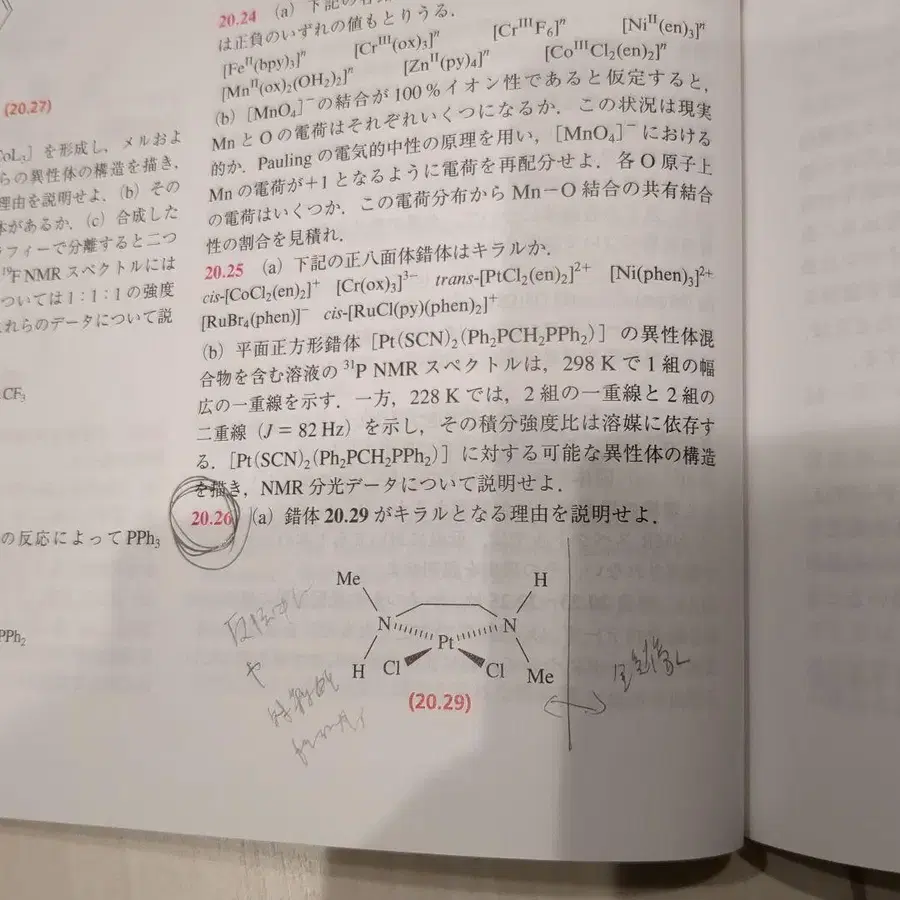 20.24 (a) 下記の
は正負のいずれの値もとりうる．
[Feᴵᴵ(bpy)₃]ⁿ [Crᴵᴵᴵ(ox)₃]ⁿ [CrᴵᴵᴵF₆]ⁿ [Niᴵᴵ(en)₃]ⁿ
[Mnᴵᴵ(ox)₂(OH₂)₂]ⁿ [Znᴵᴵ(py)₄]ⁿ [CoᴵᴵᴵCl₂(en)₂]ⁿ
(b) [MnO₄]⁻の結合が100％イオン性であると仮定すると，
MnとOの電荷はそれぞれいくつになるか．この状況は現実
的か．Paulingの電気的中性の原理を用い，[MnO₄]⁻における
Mnの電荷が+1となるように電荷を再配分せよ．各O原子上
の電荷はいくつか．この電荷分布からMn−O結合の共有結合
性の割合を見積れ．
20.25 (a) 下記の正八面体錯体はキラルか．
cis-[CoCl₂(en)₂]⁺ [Cr(ox)₃]³⁻ trans-[PtCl₂(en)₂]²⁺ [Ni(phen)₃]²⁺
[RuBr₄(phen)]⁻ cis-[RuCl(py)(phen)₂]⁺
(b) 平面正方形錯体 [Pt(SCN)₂(Ph₂PCH₂PPh₂)] の異性体混
合物を含む溶液の ³¹P NMRスペクトルは，298 Kで1組の幅
広の一重線を示す．一方，228 Kでは，2組の一重線と2組の
二重線 (J = 82 Hz) を示し，その積分強度比は溶媒に依存す
る．[Pt(SCN)₂(Ph₂PCH₂PPh₂)] に対する可能な異性体の構造
を描き，NMR分光データについて説明せよ．
20.26 (a) 錯体20.29がキラルとなる理由を説明せよ．
Me H
N N
Pt
H Cl Cl Me
(20.29)
(20.27)
CoL₃] を形成し，メルおよ
らの異性体の構造を描き，
理由を説明せよ．(b) その
体があるか．(c) 合成した
ラフィーで分離すると二つ
¹⁹F NMRスペクトルには
ついては1：1：1の強度
これらのデータについて説
CF₃
の反応によってPPh₃
PPh₂